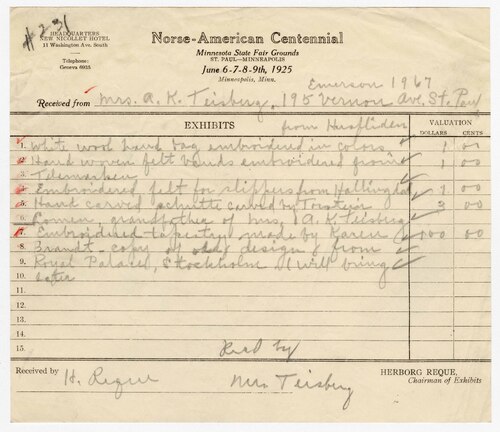 # 231
HEADQUARTERS
NEW NICOLLET HOTEL
11 Washington Ave. South
Telephone:
Geneva 6935
Norse-American Centennial
Minnesota State Fair Grounds
ST. PAUL—MINNEAPOLIS
June 6-7-8-9th, 1925
Minneapolis, Minn.
Emerson 1967
Received from Mrs. A. K. Teisberg, 195 Vernon Ave, St. Paul
EXHIBITS
VALUATION
DOLLARS CENTS
from
1. White wool hand bag embroidered in colors 1 00
2. Hand woven felt bands embroidered from 1 00
3. Telemarken
4. Embroidered felt for slippers from Hallingdal 1 00
5. Hand carved carved by Torstein 3 00
6. grandfather of Mrs. A. K. Teisberg
7. Embroidered tapestry made by Karen 100 00
8. Brandt - copy of old design from
9. Royal Palace, Stockholm. I will bring
10. later
11.
12.
13.
14.
15.
Recd by
Received by H. Reque
Mrs Teisberg
HERBORG REQUE,
Chairman of Exhibits